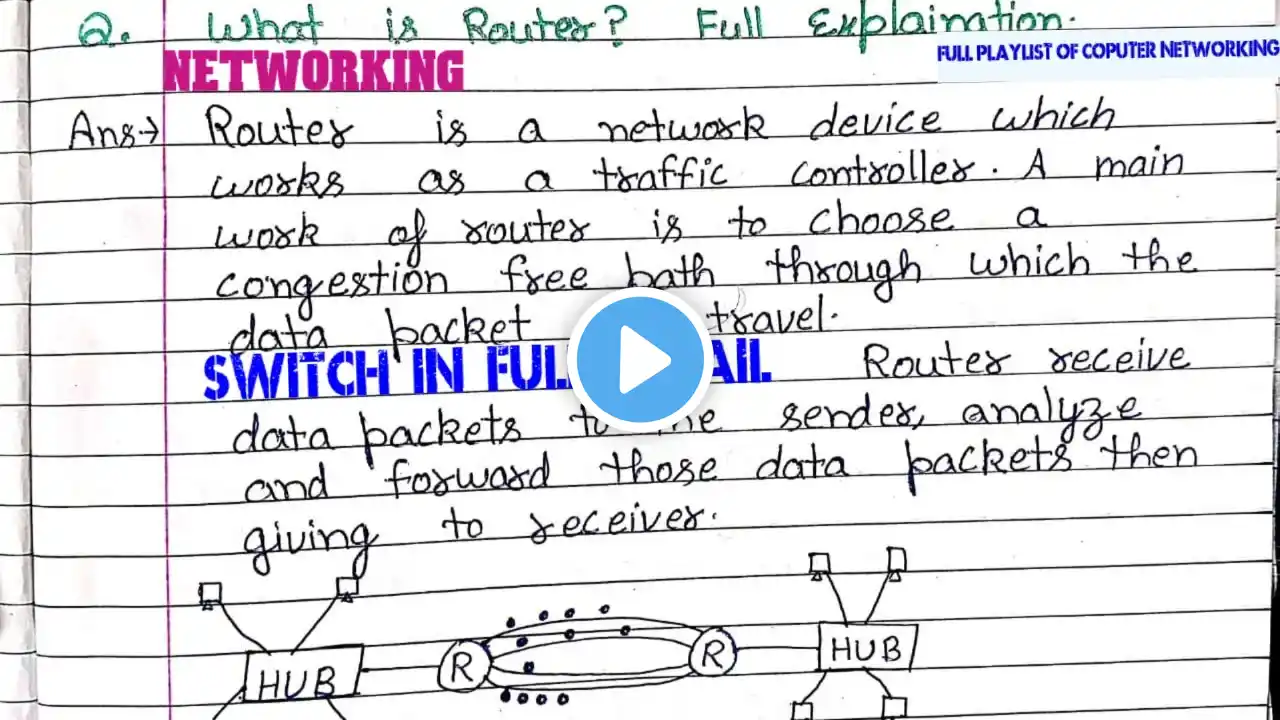 Q. What is Router? Full Explaination.
NETWORKING
FULL PLAYLIST OF COPUTER NETWORKING
Ans→ Router is a network device which
works as a traffic controller. A main
work of router is to choose a
congestion free path through which the
data packet travel.
SWITCH IN Router receive
data packets sender, analyze
and forward those data packets then
giving to receiver.
HUB R R HUB